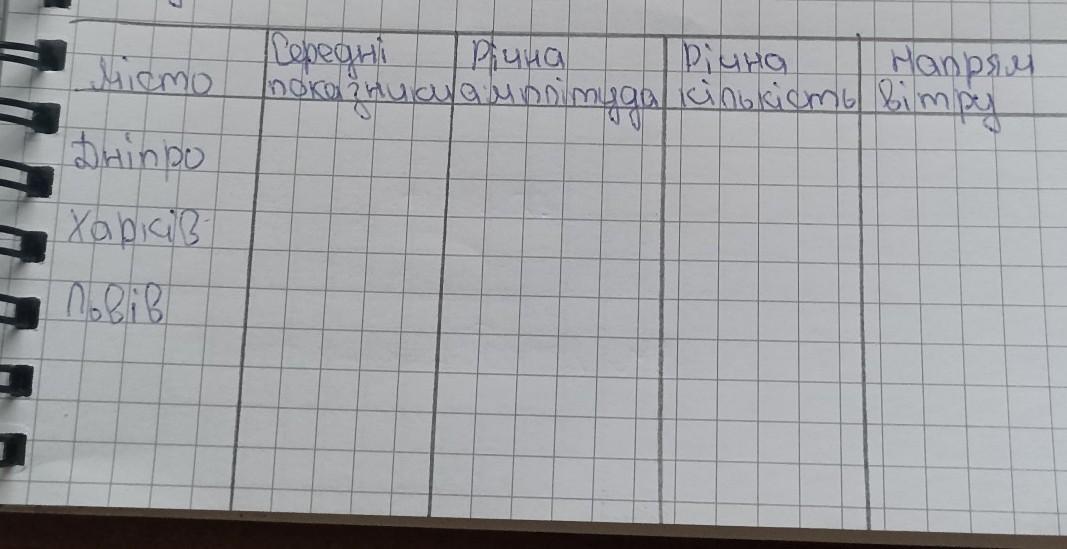 Середні Річна Річна Напрям
Місто показники амплітуда кількість вітру
Дніпро
Харків
Львів